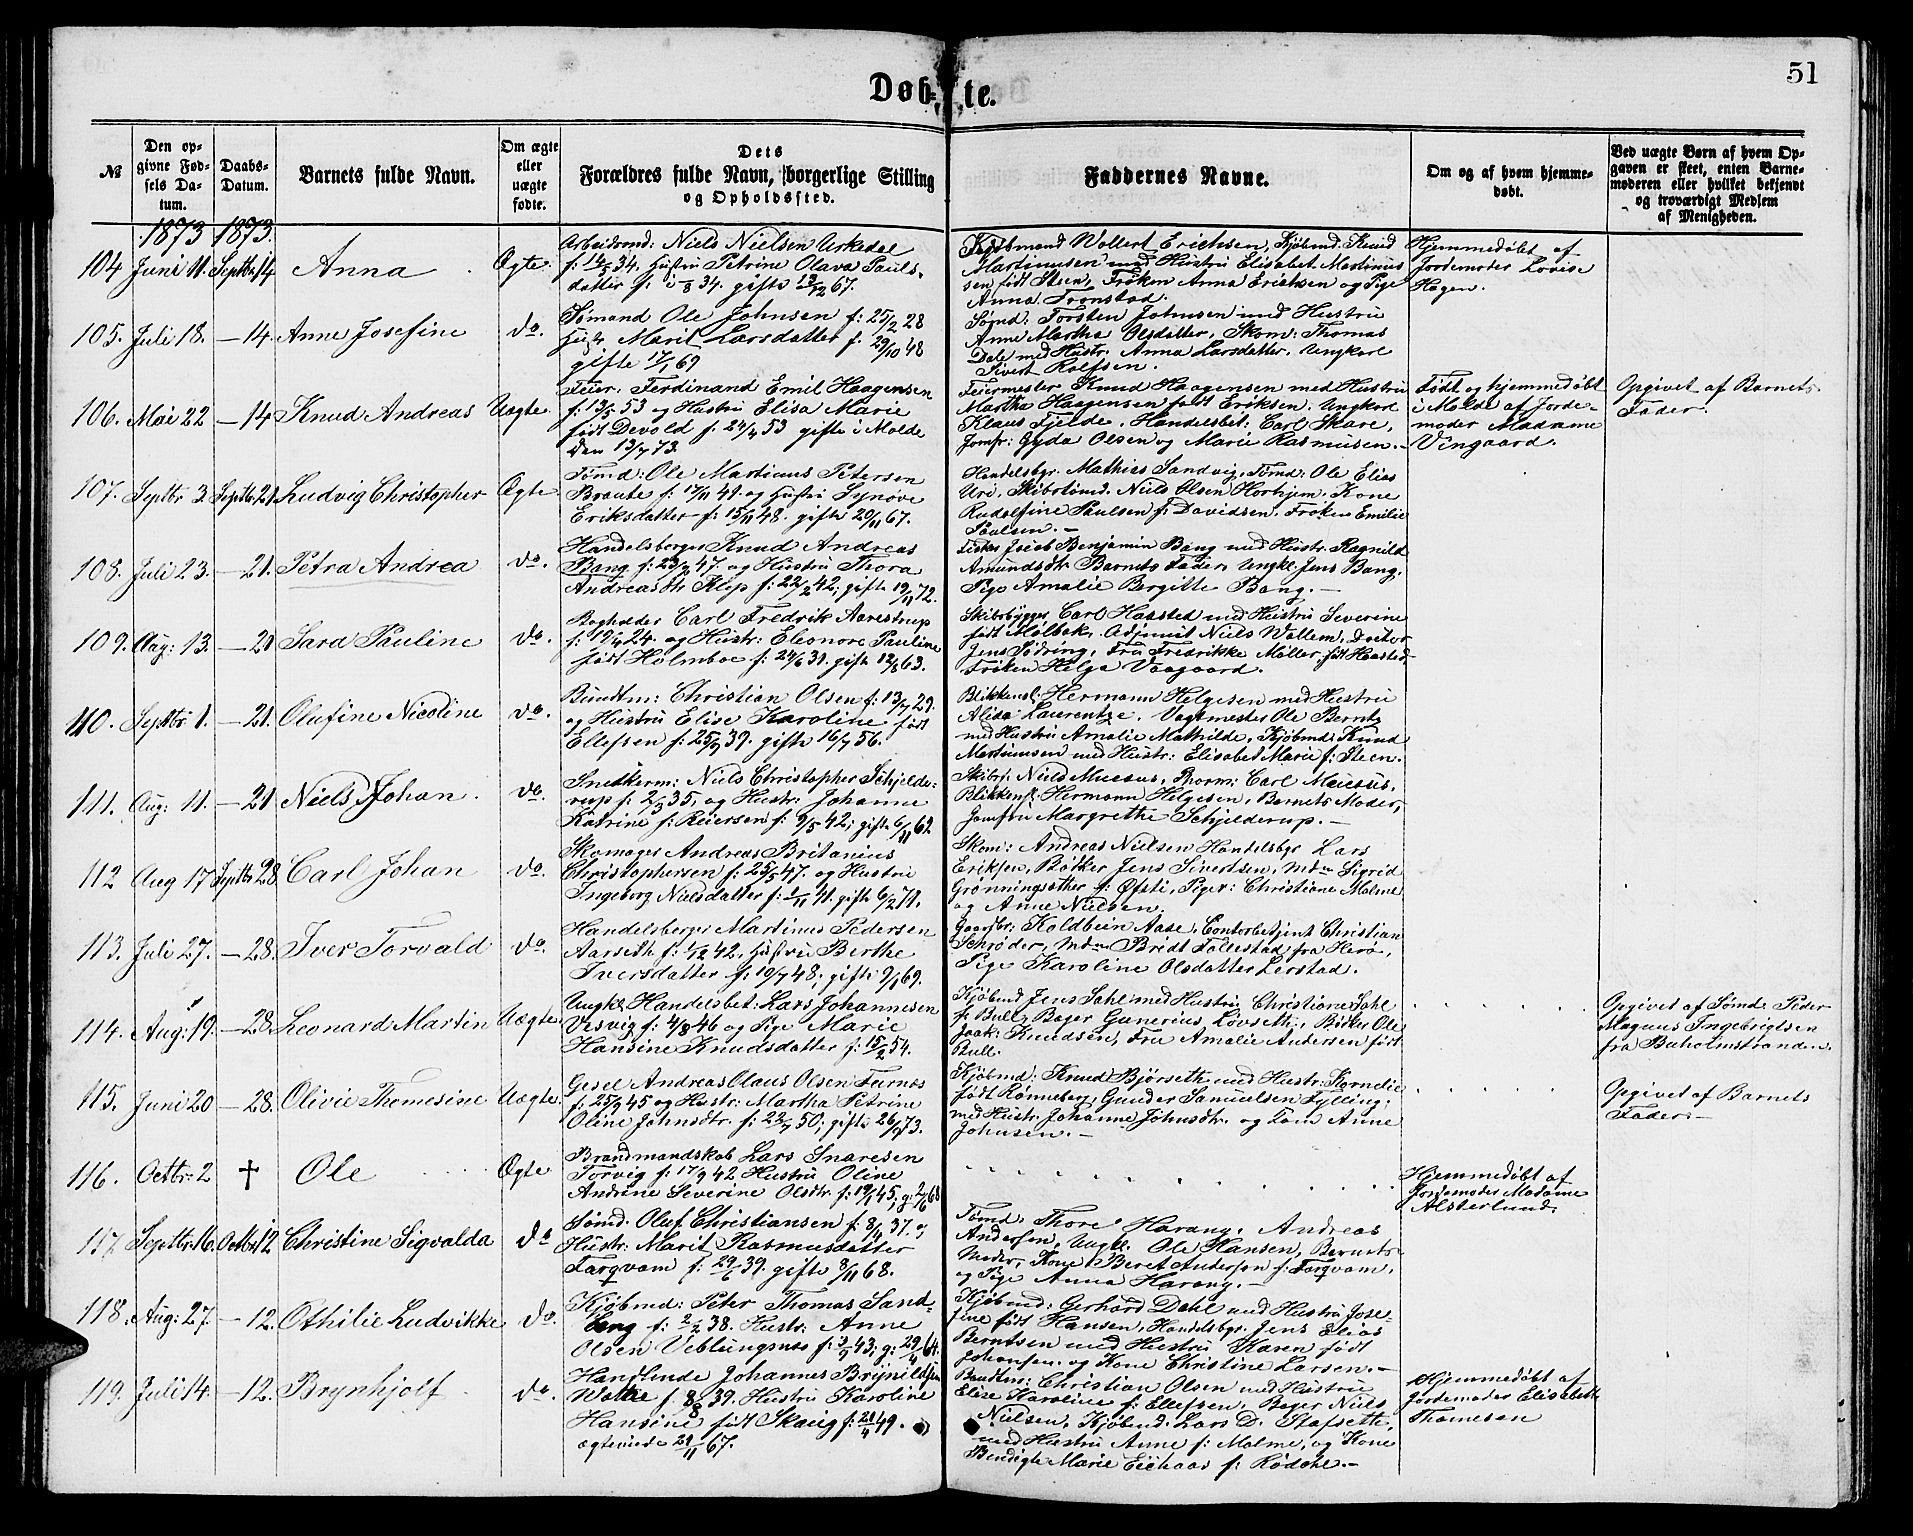 51
Døbte.
№
Den opgivne Fødsels Datum.
Daabs-Datum.
Barnets fulde Navn.
Om ægte eller uægte fødte.
Dets Forældres fulde Navn, borgerlige Stilling og Opholdssted.
Faddernes Navne.
Om og af hvem hjemmedøbt.
Ved uægte Børn af hvem Opgaven er skeet, enten Barnemoderen eller hvilket bekjendt og troværdigt Medlem af Menigheden.
1873 1873.
104 Juni 11. Septbr 14 Anna Ægte
Arbeidsmd: Niels Nielsen Urkedal
34. Hustru Petrine Olava Pauls-
datter f. 34. gifte 67.
Kjøbmand Wollert Erichsen, Kjøbmd: Knud
Martinusen med Hustru Elisabet Martinus
sen født Steen, Frøken Anna Erichsen og Pige
Anna Tronstad.
Hjemmedøbt af
Jordemoder Lovise
Hagen.
105. Juli 18. — 14. Anne Josefine do.
Sømand Ole Johnsen f: 25/2 28
Hust: Marit Larsdatter f. 29/10 48
gifte 69
Sømd: Torsten Johnsen med Hustru
Anne Martha Olsdatter, Skom: Thomas
Dale med Hustr. Anna Larsdatter. Ungkarl
Sivert Rolfsen.
106. Mai 22 — 14 Knud Andreas Uægte
Feier. Ferdinand Emil Haagensen
f: 13/5 53 og Hustru Elisa Marie
født Devold f: 24/4 53 gifte i Molde
den 13/7 73.
Feiermester Knud Haagensen med Hustru
Martha Haagensen født Eriksen. Ungkarl
Klaus Fjelde. Handelsbet: Carl Skare,
Jomfr: Gyda Olsen og Marie Rasmusen.-
Født og hjemmedøbt
i Molde af Jorde-
moder Madame
Vingaard.
Opgivet af Barnets
Fader.
107. Septbr 3. Septbr 21. Ludvig Christopher Ægte
Tømd: Ole Martinus Peterson
Braute f: 17/11 41. og Hustru Synøve
Eriksdatter f: 15/11 48. gifte 20/11 67.
Handelsbgr. Mathias Sandvig, Tømd: Ole Elias
Uri, Skibstømd. Niels Olsen Horhjem. Kone
Rudolfine Paulsen f: Davidsen. Frøken Emilie
Paulsen.-
108. Juli 23. — 21. Petra Andrea do.
Handelsborger Knud Andreas
Bang f: 47. og Hustru Thora
Andreasdtr Klep f: 22/2 42; gifte 19/11 72.
Jacob Benjamin Bang med Hustr. Ragnild
Amundsdtr. Barnets Fader. Ungk: Jens Bang.
Pige Amalie Bergitte Bang.-
109. Aug: 13. — 21 Sara Pauline do.
Bogholder Carl Fredrik Aarestrup
f: 19/4 24. og Hustr: Eleonore Pauline
født Holmboe f: 24/6 39. gifte 12/8 63.
Skibsbygger Carl Hasted med Hustru Severine
født Mølbak. Adjunct Niels Wollem, Doctor
Jens Sødring, Fru Fredrikke Møller født Haasted.
Frøken Helga Vaagaard.
110. Septbr 1. — 21. Olufine Nicoline do.
Bundtm: Christian Olsen f: 13/7 29.
og Hustru Elise Karoline født
Ellefsen f: 39. gifte 16/7 56.
Blikkensl: Hermann Helgesen med Hustru
Alida Laurentze. Vagtmester Ole Berntz
med Hustru Amalie Mathilde, Kjøbmd: Knud
Martinusen med Hustr: Elisabet Marie f: Steen.
111. Aug: 11. — 21 Niels Johan. do.
Snedkerm: Niels Christopher Schjelde-
rup f: 35, og Hustr: Johanne
Katrine f: Reiersen f: 9/5 42; gifte 6/11 62
Skibsr: Niels Mueus, Carl Mausus.
Blikkensl: Hermann Helgesen, Barnets Moder,
Jomfru Margrethe Schjelderup.-
112 Aug 17 Septbr 28 Carl Johan do.
Skomager Andreas Britanius
Christophersen f: 25/5 47. og Hustru
Ingeborg Nielsdatter f: 1/11 41. gifte 6/2 71.
Skom: Andreas Nielsen Handelsbgr Lars
Eriksen, Bøtker Jens Sivertsen, Mdm Sigrid
Grønningsæther f: Øfsti, Piger: Christiane Malme
og Anne Nielsen.
113. Juli 27. — 28. Iver Torvald do.
Handelsborger Martinus Pedersen
Aarseth f: 42. Hustru Berthe
Iversdatter f: 10/7 48; gifte 69.
Gaardbr: Koldbein Aase, Contorbetjent Christian
Schrøder, Mdm Bridt Tollestad, fra Herø,
Pige Karoline Olsdatter Lerstad.
114. Aug: 19. — 28. Leonard Martin Uægte
Ungk: Handelsbet: Lars Johannesen
Vesvig f: 4/8 46 og Pige Marie
Hansine Knudsdatter f: 15/2 54.
Kjøbmd Jens Sahl med Hustru Christiane Sahl
f: Bull, Bager Gunerius Lovseth, Ole
Jaak: Knudsen, Fru Amalie Andersen født
Bull.
Opgivet af Sømd: Peder
Magnus Ingebrigtsen
fra Buholmstranden.
115. Juni 20 — 28. Olivie Thomesine Uægte
Gesel Andreas Olaus Olsen Furnæs
f: 45 og Hustr: Martha Petrine
Oline Johnsdtr. f: 50; gifte 73.
Kjøbmd: Knud Bjørseth med Hustr: Kornelie
født Rønneberg, Gunder Samuelsen Fylling.
med Hustr: Johanne Johnsdtr. og Anne
Johnsen.-
Opgivet af Barnets
Fader.-
116. Octbr: 2 † Ole Ægte
Brandmandskab Lars Snaresen
Torvig f: 17/9 42 Hustru Oline
Andrine Severine Olsdtr. f: 45; g: 68
Hjemmedøbt af
Jordemoder Madame
Alsterlund.
117. Septbr: 16. Octbr: 12 Christine Sigvalda do
Sømd. Oluf Christiansen f: 8/4 37. og
Hustr: Marit Rasmusdatter
Farqvam f: 29/6 39. gifte 8/11 68.
Tømd: Thore Harang. Andreas
Andersen, Ungk. Ole Hansen, Barnets
Moder, Kone Beret Andersen f: Farqvam,
og Pige Anna Harang.-
118. Aug: 27. — 12. Othilie Ludvikke do.
Kjøbmd: Peter Thomas Sand-
berg f: 2/2 38. Hustr: Anne
Olsen Veblungsnes f: 43; g: 29/4 64.
Kjøbmd: Gerhard Dahl med Hustru Jose-
fine født Hansen, Handelsbgr. Jens Elias
Berntsen med Hustru Karen født
Johansen. og Kone Christine Larsen.-
119. Juli 14. — 12. Brynhjolf do.
Handlende Johannes Brynildsen
f 8/8 39. Hustru Karoline
Hansine født Skaug f: 20/4 49.
ægteviede 67.
Bundtm: Christian Olsen med Hustru
Elise Karoline f: Ellefsen, Bager Niels
Nielsen, Kjøbmd. Lars D. Stafseth,
med Hustru Anne f: Malme, og Kone
Bendigte Marie Eiehaar f: Rødahl.-
Hjemmedøbt af
Jordemoder Elisabeth
Thomesen